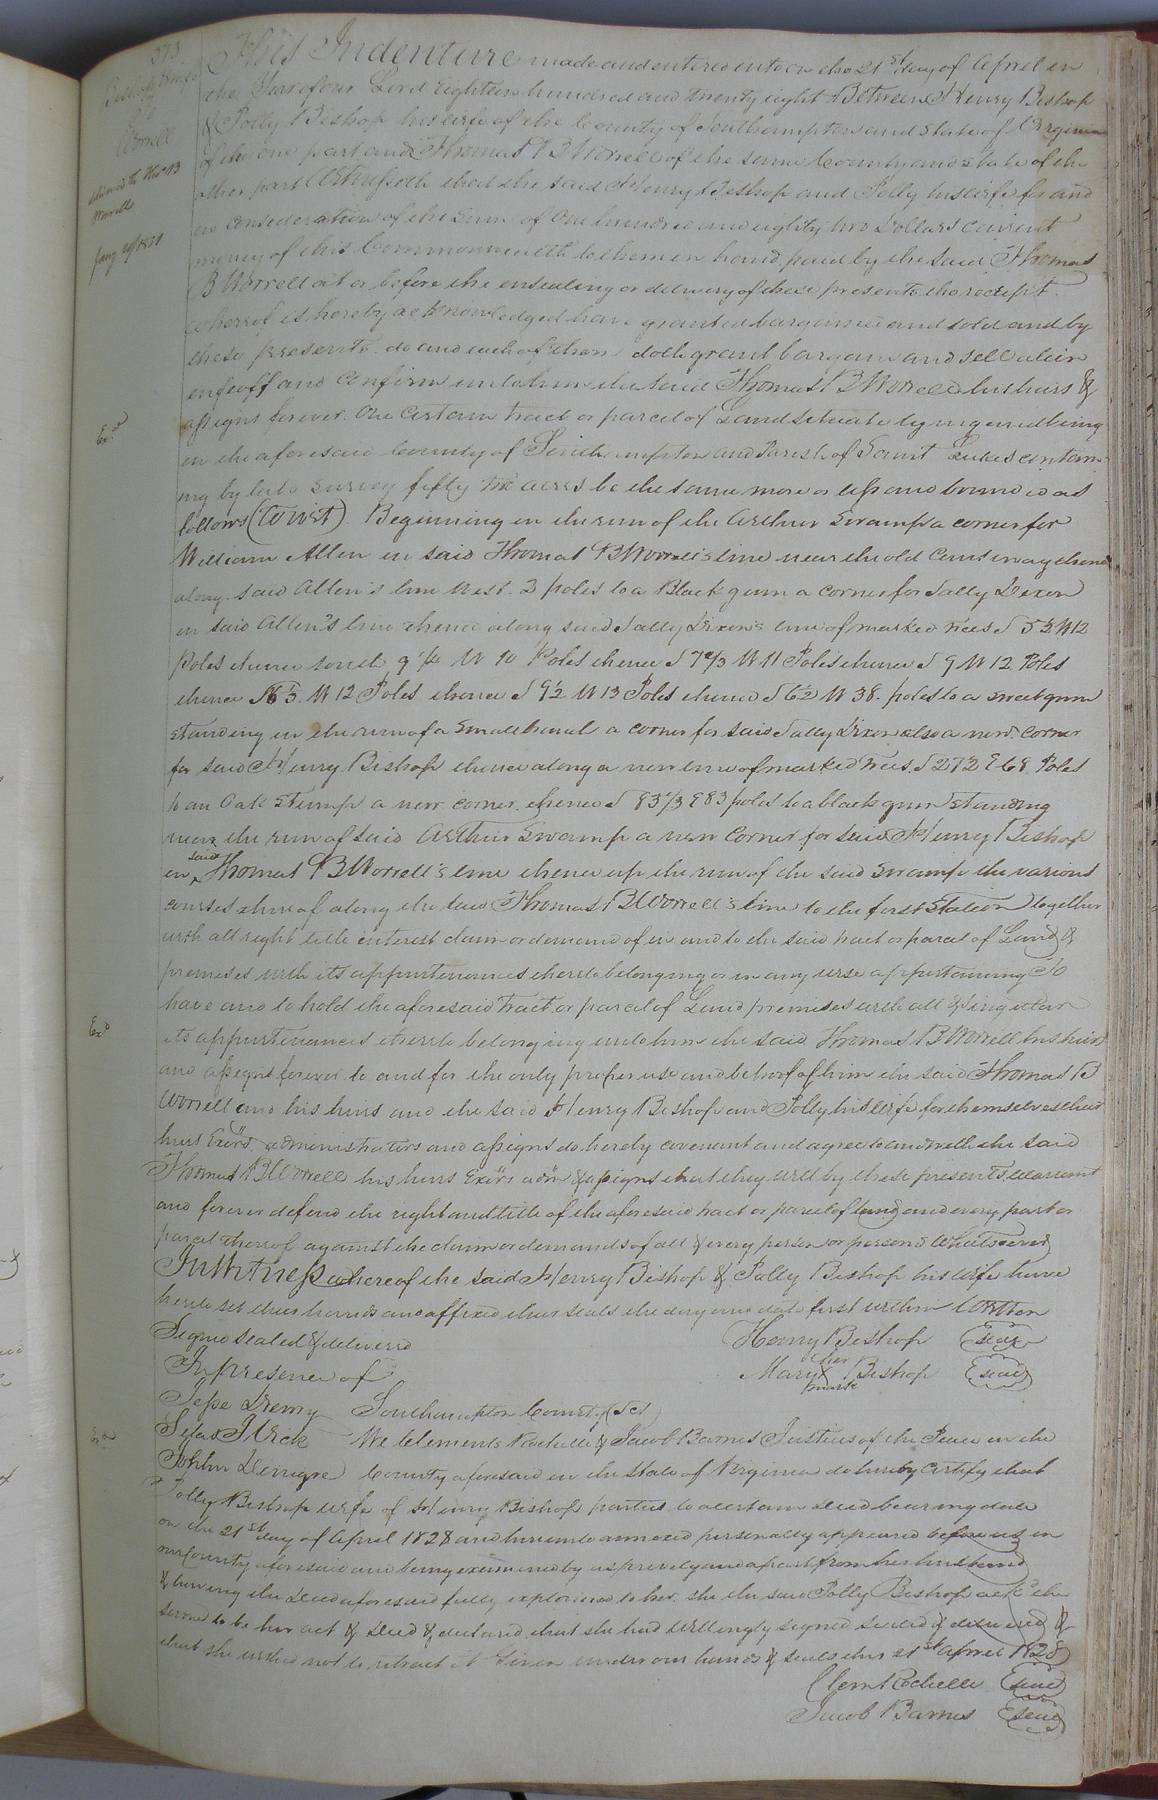 373
Bishop
To
Worrell
delivered to Thos B
Worrell
Jany 1831
This Indenture made and entered into on the 21st day of April in
the Year of our Lord eighteen hundred and twenty eight Between Henry Bishop
& Polly Bishop his wife of the County of Southampton and State of Virginia
of the one part and Thomas B Worrell of the same County and State of the
other part Witnesseth that the said Henry Bishop and Polly his wife for and
in consideration of the Sum of One hundred and eighty two Dollars current
money of this Commonwealth to them in hand paid by the said Thomas
B Worrell at or before the ensealing or delivery of these presents the receipt
whereof is hereby acknowledged have granted bargained and sold and by
these presents do and each of them doth grant bargain and sell alien
enfeoff and confirm unto him the said Thomas B Worrell his heirs &
assigns forever One Certain tract or parcel of Land Situate lying and being
in the aforesaid County of Southampton and Parish of Saint Lukes contain
Exd
ing by late Survey fifty two acres be the same more or less and bounded as
follows (To wit) Beginning in the run of the Arthur Swamp a corner for
William Allen in said Thomas B Worrell's line near the old Causeway thence
along said Allen's line West 3 poles to a Black gum a corner for Sally Dixon
in said Allen's line thence along said Sally Dixon's line of marked trees S 53 W 12
Poles thence south 9 W 10 Poles thence S W 11 Poles thence S 9 W 12 Poles
thence W 12 Poles thence S 9½ W 13 Poles thence S 62 W 38 poles to a sweet gum
standing in the run of a Small branch a corner for said Sally Dixon also a new corner
for said Henry Bishop thence along a new line of marked trees S 272 E 68 Poles
to an Oak Stump a new corner thence S 83 1/3 E 83 poles to a black gum standing
near the run of said Arthur Swamp a new Corner for said Henry Bishop
in said Thomas B Worrell's line thence up the run of the said Swamp the various
courses thereof along the said Thomas B Worrell's line to the first Station together
with all right title interest claim or demand of in and to the said tract or parcel of Land &
premises with its appurtenances thereto belonging or in any wise appertaining To
have and to hold the aforesaid Tract or parcel of Land premises with all & singular
Exd
its appurtenances thereto belonging unto him the said Thomas B Worrell his heirs
and assigns forever to and for the only proper use and behoof of him the said Thomas B
Worrell and his heirs and the said Henry Bishop and Polly his wife for themselves their
heirs Exors administrators and assigns do hereby covenant and agree to and with the said
Thomas B Worrell his heirs Exors adm & assigns that they will by these presents warrant
and forever defend the right and title of the aforesaid tract or parcel of land and every part or
parcel thereof against the claim or demands of all & every person or persons Whatsoever
In Witness whereof the said Henry Bishop & Polly Bishop his wife have
hereto set their hands and affixed their seals the day and date first within Written
Signed sealed & delivered
In presence of
Henry Bishop (seal)
Mary her X mark Bishop (seal)
Jesse Drewry
Silas Kirk
John Denegre
Southampton County (Sct)
Exd
We Clements Rochelle & Jacob Barnes Justices of the Peace in the
County aforesaid in the State of Virginia do hereby Certify that
Polly Bishop wife of Henry Bishop parties to a certain Deed bearing date
on the 21st day of April 1828 and hereunto annexed personally appeared before us in
our County aforesaid and being examined by us privily and apart from her husband
& having the Deed aforesaid fully explained to her she the said Polly Bishop ackd the
same to be her act & Deed & declared that she had Willingly signed sealed & delivered &
that she wished not to retract it Given under our hands & seals this 21st April 1828
Clem Rochelle (seal)
Jacob Barnes (seal)